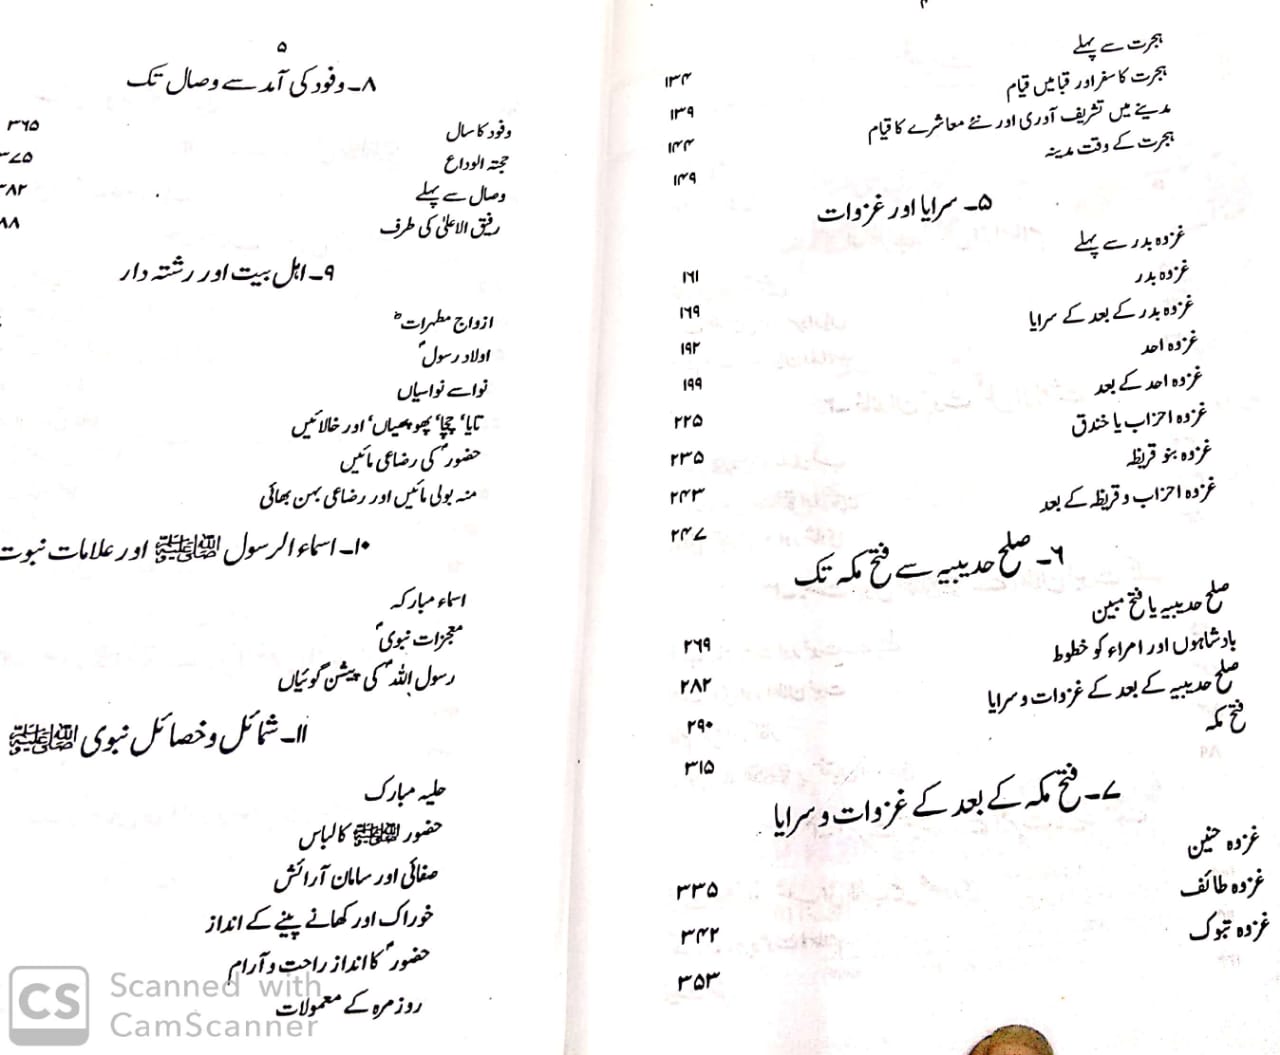 ہجرت سے پہلے ۱۳۴
ہجرت کا سفر اور قبا میں قیام ۱۳۹
مدینے میں تشریف آوری اور نئے معاشرے کا قیام ۱۴۴
ہجرت کے وقت مدینہ ۱۴۹
۵۔ سرایا اور غزوات
غزوہ بدر سے پہلے ۱۶۱
غزوہ بدر ۱۶۹
غزوہ بدر کے بعد کے سرایا ۱۹۲
غزوہ احد ۱۹۹
غزوہ احد کے بعد ۲۲۵
غزوہ احزاب یا خندق ۲۳۵
غزوہ بنو قریظہ ۲۴۳
غزوہ احزاب و قریظہ کے بعد ۲۴۷
۶۔ صلح حدیبیہ سے فتح مکہ تک
صلح حدیبیہ یا فتح مبین ۲۶۹
بادشاہوں اور امراء کو خطوط ۲۸۲
صلح حدیبیہ کے بعد کے غزوات و سرایا ۲۹۰
فتح مکہ ۳۱۵
۷۔ فتح مکہ کے بعد کے غزوات و سرایا
غزوہ حنین ۳۳۵
غزوہ طائف ۳۴۲
غزوہ تبوک ۳۵۳
۵
۸۔ وفود کی آمد سے وصال تک
وفود کا سال ۳۶۵
حجتہ الوداع ۳۷۵
وصال سے پہلے ۳۸۲
رفیق الاعلیٰ کی طرف ۸۸
۹۔ اہل بیت اور رشتہ دار
ازواج مطہراتؓ
اولاد رسولؐ
نواسے نواسیاں
تایا‘ چچا‘ پھوپھیاں‘ اور خالائیں
حضورؐ کی رضاعی مائیں
منہ بولی مائیں اور رضاعی بہن بھائی
۱۰۔ اسماء الرسول ﷺ اور علامات نبوت
اسماء مبارکہ
معجزات نبویؐ
رسول اللہؐ کی پیشن گوئیاں
۱۱۔ شمائل و خصائل نبوی ﷺ
حلیہ مبارک
حضور ﷺ کا لباس
صفائی اور سامان آرائش
خوراک اور کھانے پینے کے انداز
حضورؐ کا انداز راحت و آرام
روزمرہ کے معمولات
CS Scanned with
CamScanner